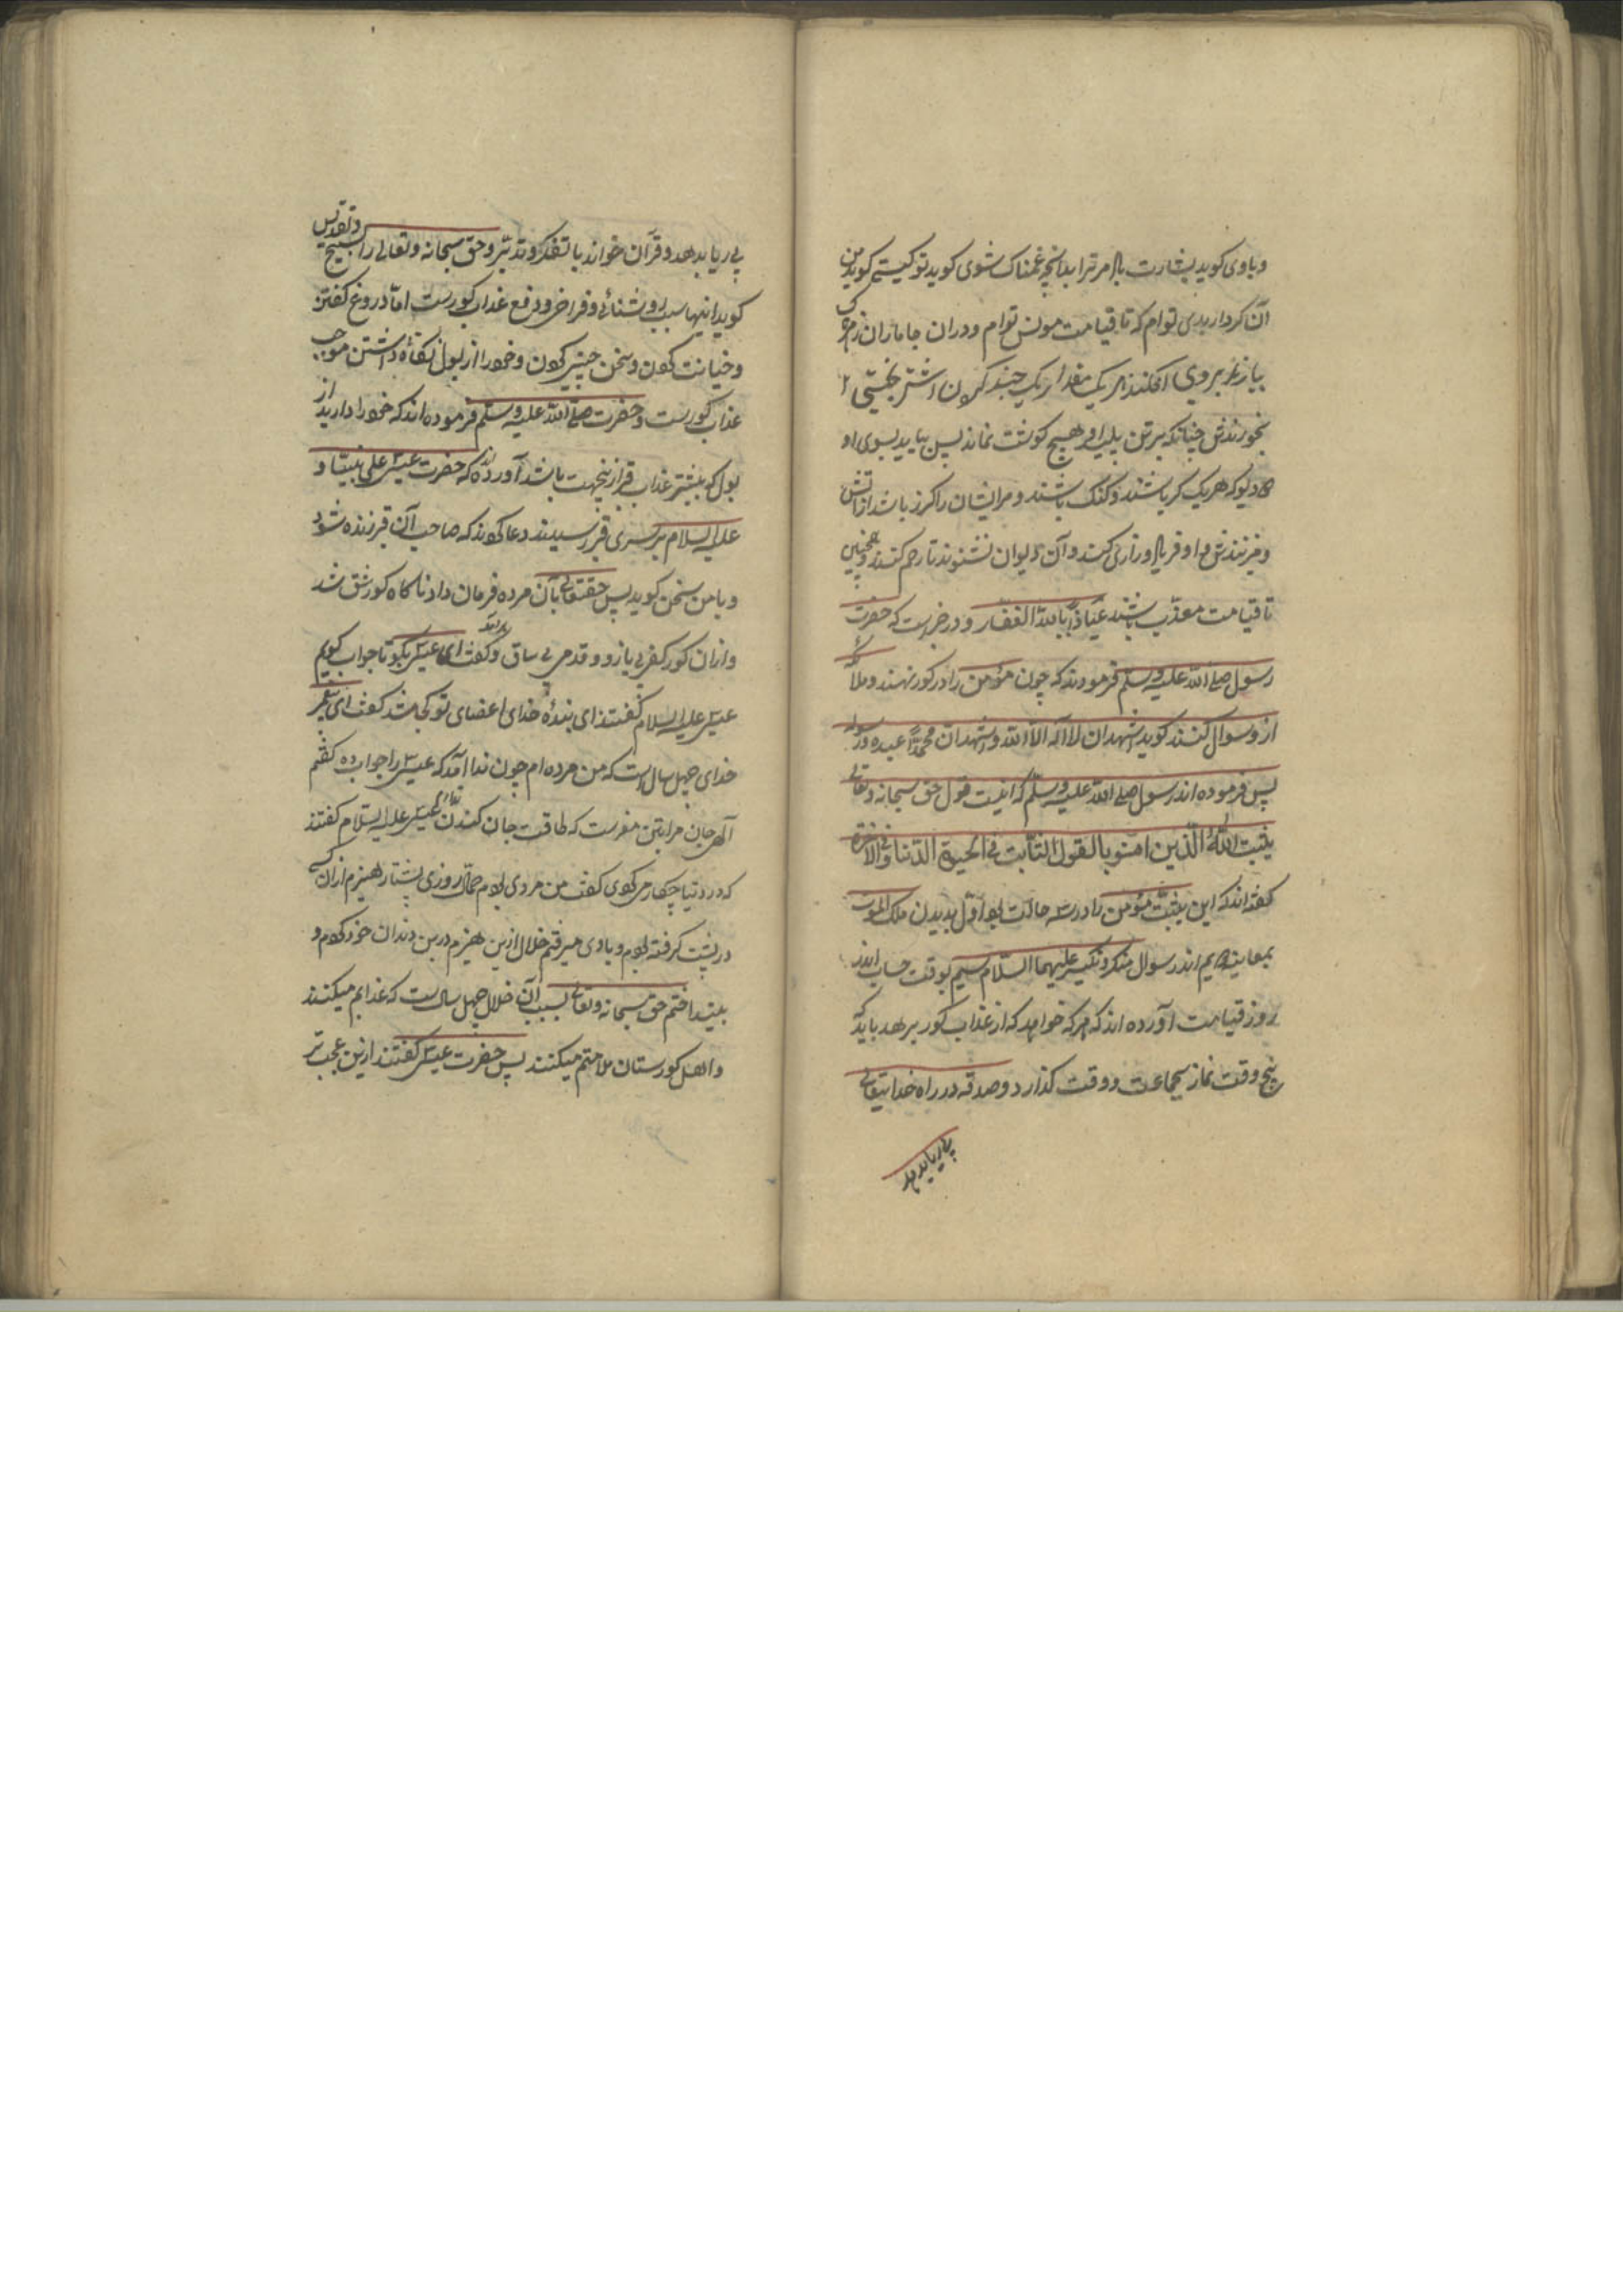 وباوی کوید بشارت باد مر ترا بدانچه غمناک شوی کوید تو کیستی کوید من
آن کردار بدی توام که تا قیامت مونس توام ودران جا ماران
بیازند بروی افکنند هر یک مقدار یک چند کردن اشتر بختی
بخورندش چنانکه برتن پلید او هیچ کوشت نماند پس بیاید بسوی او
دیو که هریک کر باشند و کنک باشند و مرایشان را کرز باشد از آتش
و میزنندش و او فریاد و زاری کند و آن دیوان نشنوند تا رحم کنند و همچنین
تا قیامت معذب باشند عیاذا باللّه الغفار و در خبر است که حضرت
رسول صلے اللّه علیه وسلم فرمودند که چون مؤمن را در کور نهند و ملائکه
ازو سوال کنند کوید اشهد ان لا اله الا اللّه و اشهد ان محمدًا عبده ورسوله
پس فرموده اند رسول صلے اللّه علیه وسلم که اینست قول حق سبحانه وتعالے
یثبت اللّهُ الّذین امنوا بالقول الثابت فے الحیوة الدنیا وفے الاخرة
کفته اند که این یثبت مؤمن را در سه حالت بود اول بدیدن ملک الموت
بمعاینه دویم اندر سوال منکر ونکیر علیهما السلام سیم بوقت حساب اندر
روز قیامت آورده اند که هر که خواهد که از عذاب کور برهد باید که
پنج وقت نماز بجماعت و وقت کذارد و صدقه در راه خدایتعالے
بے ریا بدهد
بے ریا بدهد و قرآن خواند با تفکر و تدبّر و حق سبحانه وتعالے را تسبیح وتقدیس
کوید اینها سبب روشنائے و فراخی و دفع عذاب کورست امّا دروغ کفتن
وخیانت کردن و سخن چینی کردن و خود را از بول نکاه نداشتن موجب
عذاب کورست و حضرت صلے اللّه علیه وسلم فرموده اند که خود را دارید از
بول که بیشتر عذاب قبر ازینجهت باشد آورده اند که حضرت عیسی علی نبینا و
علیه السلام بر سری قبر رسیدند دعا کردند که صاحب آن قبر زنده شود
و با من سخن کوید پس حقتعالے بآن مرده فرمان داد ناکاه کور شق شد
وازان کور بے بازو و قدم بے ساق و کفت ای عیسی بکو تا جواب کویم
عیسی علیه السلام کفتند ای بندهٔ خدای اعضای تو کجا شد کفت ای پیغمبر
خدای چهل سال است که من مرده ام چون ندا آمد که عیسی را جواب ده کفتم
الهی جان مرا بتن مفرست که طاقت جان کندن ندارم عیسی علیه السلام کفتند
که در دنیا چکار میکردی کفت من مردی بودم حمّال روزی پشتاره هیزم ازان کسی
در پشت کرفته بودم و بادی میرفتم خلال ازین هیزم در بن دندان خود کردم و
بینداختم حق سبحانه وتعالے بسبب آن خلال چهل سال ست که عذابم میکنند
واهل کورستان ملامتم میکنند پس حضرت عیسی کفتند ازین عجب تر